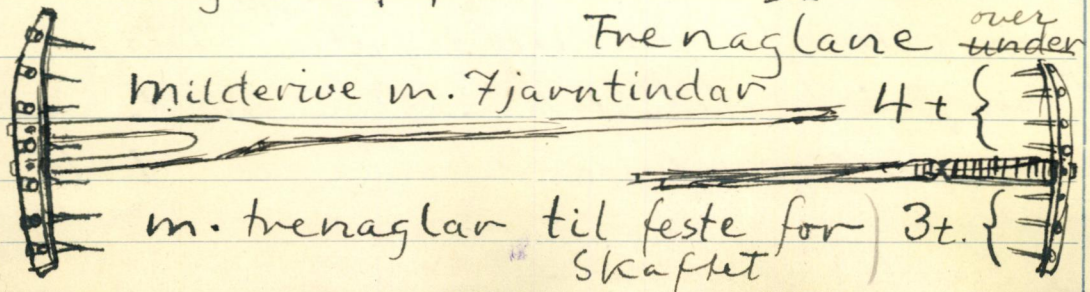 over
Trenaglane under
Milderive m. 7 jarntindar 4 t
m. trenaglar til feste for) 3 t.
Skaftet